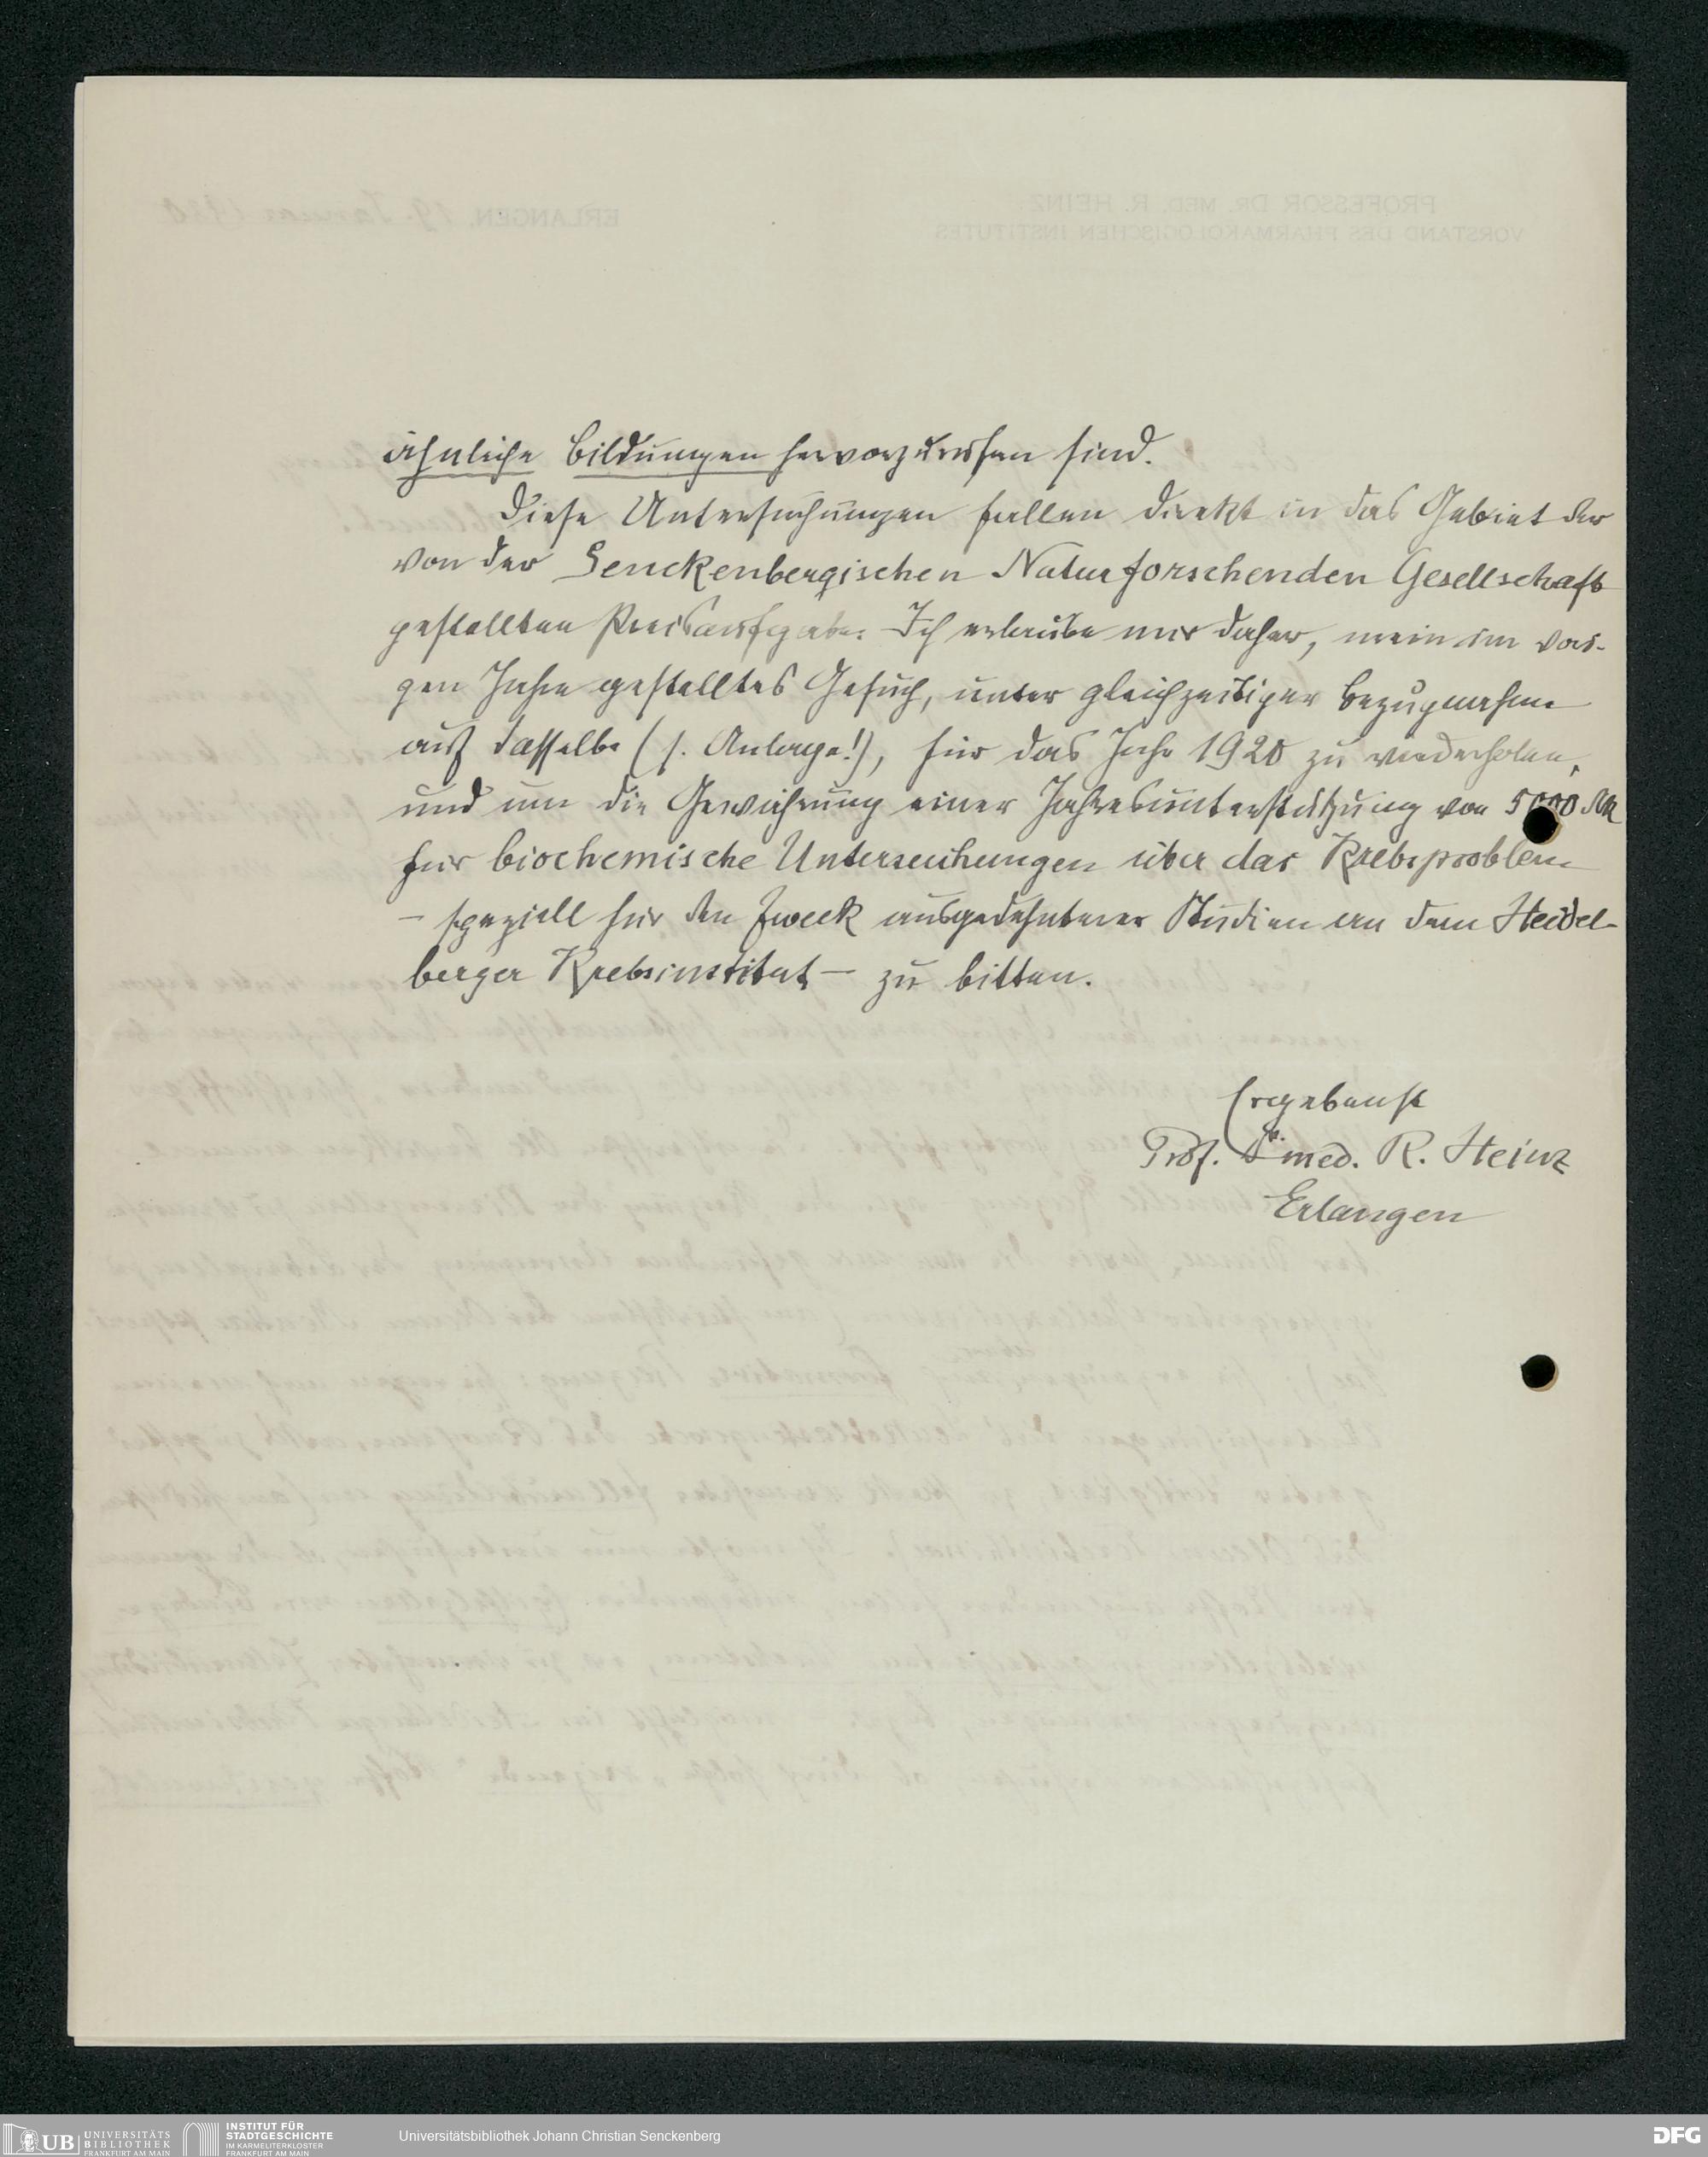 ähnliche Bildungen hervorzurufen sind.
Diese Untersuchungen fallen direkt in das Gebiet der
von der Senckenbergischen Naturforschenden Gesellschaft
gestellten Preisaufgabe. Ich erlaube mir daher, mein im vori-
gen Jahre gestelltes Gesuch, unter gleichzeitiger Bezugnahme
auf dasselbe (s. Anlage!), für das Jahr 1920 zu wiederholen,
und um die Gewährung einer Jahresunterstützung von 5000 Mk
für biochemische Untersuchungen über das Krebsproblem
– speziell für den Zweck ausgedehnterer Studien an dem Heidel-
berger Krebsinstitut – zu bitten.
Ergebenst
Prof. Dr. med. R. Heinz
Erlangen
UB
UNIVERSITÄTS
BIBLIOTHEK
FRANKFURT AM MAIN
INSTITUT FÜR
STADTGESCHICHTE
IM KARMELITERKLOSTER
FRANKFURT AM MAIN
Universitätsbibliothek Johann Christian Senckenberg
DFG